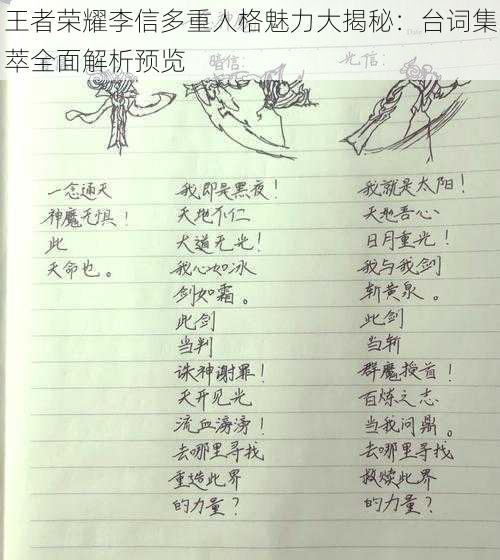 王者荣耀李信多重人格魅力大揭秘：台词集
萃全面解析预览
暗信：
光信：
Date
一念通天
神魔无惧！
此
天命也。
我即是黑夜！
天地不仁
大道无光！
我心如冰
剑如霜。
此剑
当判
诛神谢罪！
天开见光
流血滂滂！
去哪里寻找
重造此界
的力量？
我就是太阳！
天地吾心
日月重光！
我与我剑
斩黄泉。
此剑
当斩
群魔授首！
百炼之志
当我问鼎。
去哪里寻找
救赎此界
的力量？